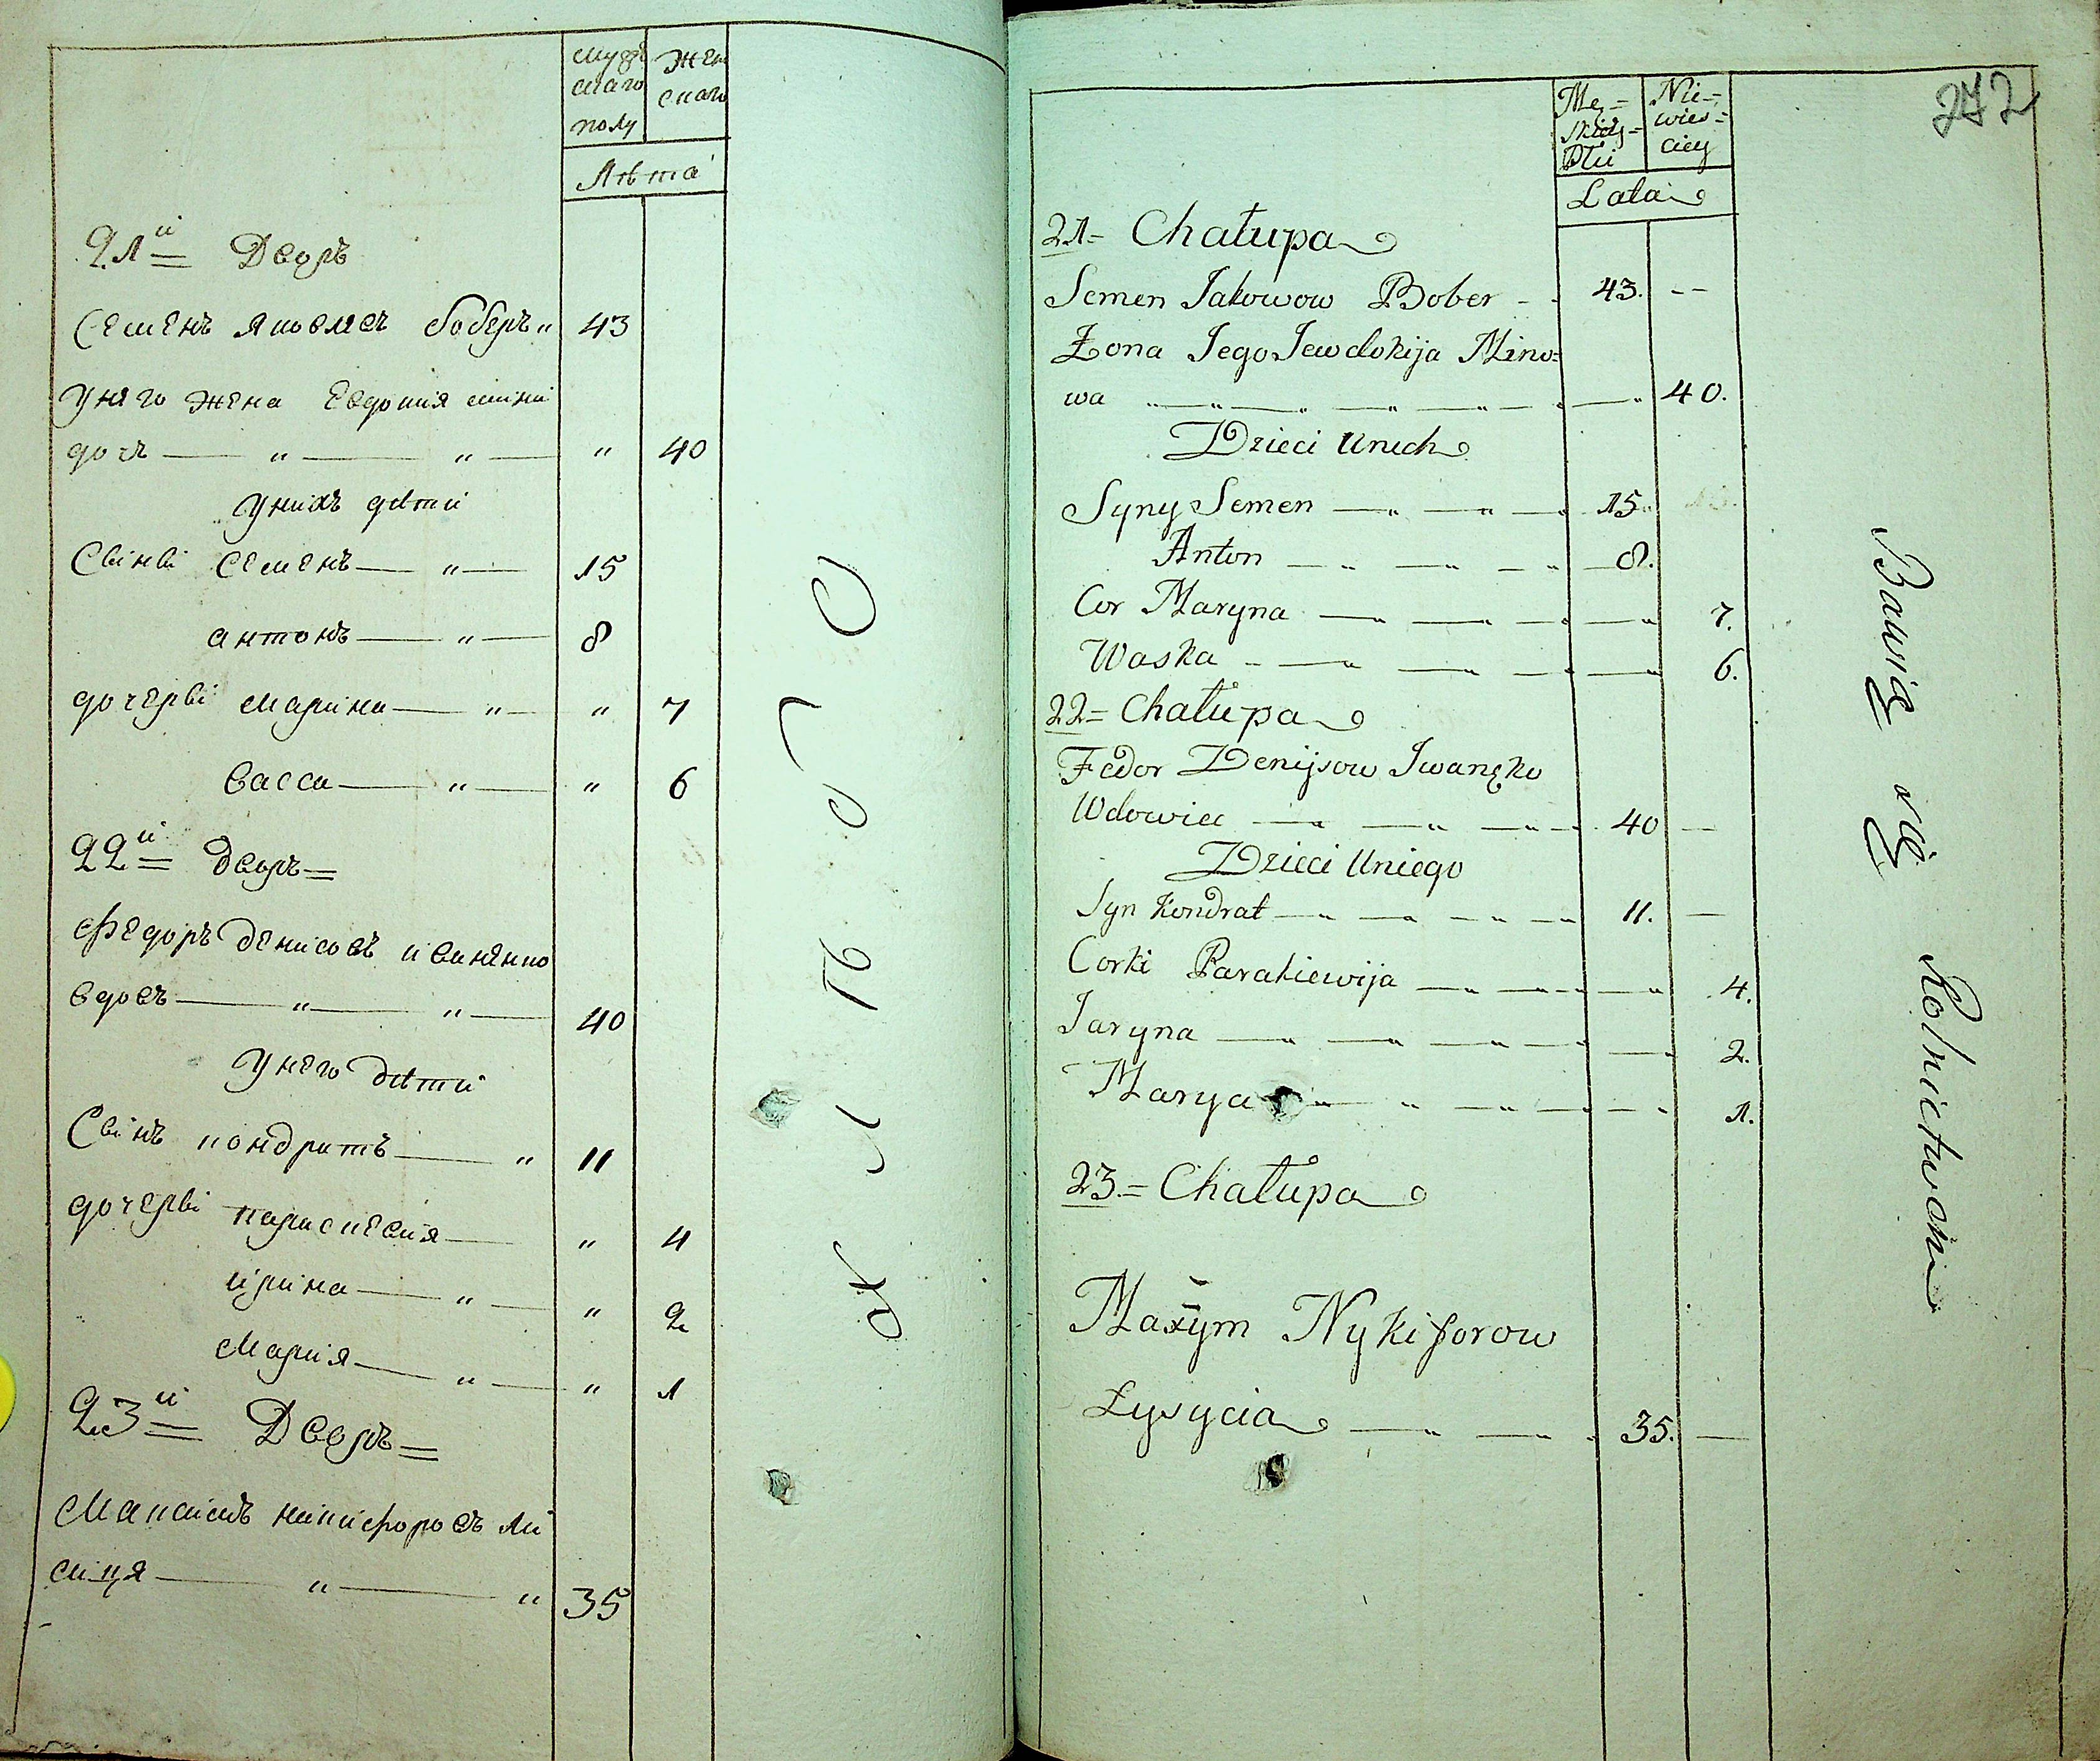 мужескаго полу
женскаго
Лѣта
21й Дворъ
Семенъ Яковлевъ боберъ 43
у него жена Евдокия мини
дочъ 40
у нихъ дѣти
Сыны Семенъ 15
антонъ 8
дочеры марина 7
васса 6
22й дворъ
Федоръ денисовъ иваненко
вдовъ 40
у него дѣти
Сынъ кондратъ 11
дочеры параскевия 4
ирина 2
мария 1
23й Дворъ
Максимъ никифоровъ ли
сиця 35
272
Mę=
skiey=
Płci
Nie=
wies=
ciey
Lata
21= Chałupa
Semen Jakowow Bober 43.
Żona Jego Jewdokija Mino=
wa 40.
Dzieci Unich
Syny Semen 15
Anton 8.
Cor Maryna 7.
Waska 6.
22= Chałupa
Fedor Denijsow Iwanęko
Wdowiec 40
Dzieci Uniego
Syn Kondrat 11.
Corki Parakiewija 4.
Jaryna 2.
Marya 1.
23= Chałupa
Maxym Nykiforow
Łysycia 35.
Bawią się Rolnictwem